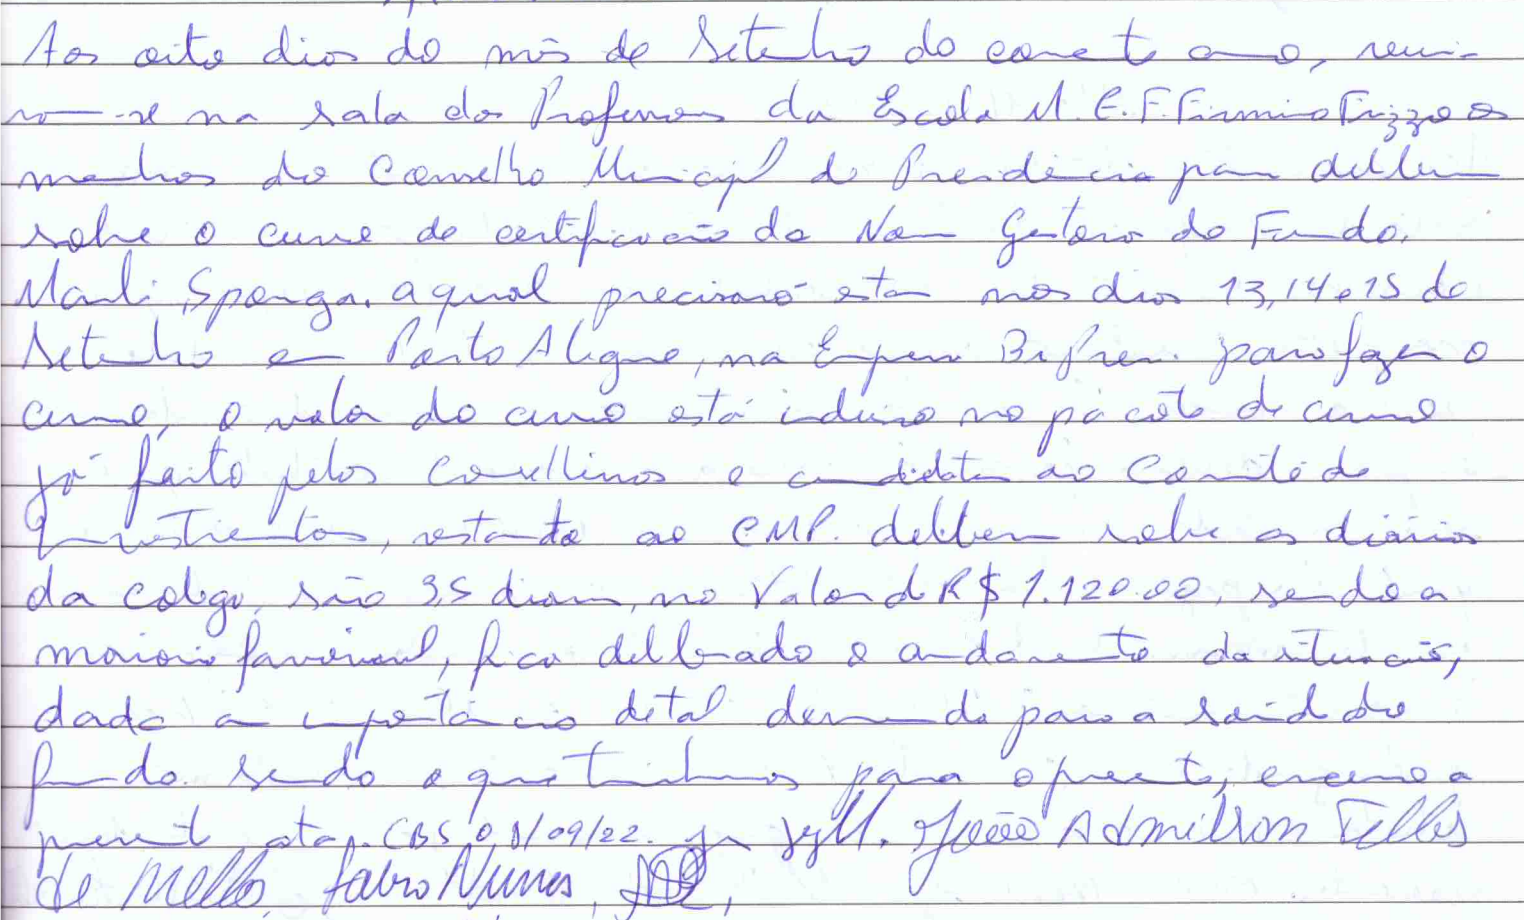 Aos oito dias do mês de Setembro do corrente ano, reuni-
ram-se na sala dos Professores da Escola M.E.F. Firmino Frizzo os
membros do Conselho Municipal de Previdência para deliberar
sobre o curso de certificação da Nova Gestora do Fundo,
Marli Sponga. a qual precisará estar nos dias 13, 14 e 15 de
Setembro em Porto Alegre, na Empresa para fazer o
curso, o valor do curso está incluso no pacote de curso
já feito pelos Conselheiros e candidatos ao Comitê de
Investimentos, restando ao CMP. deliberar sobre as diárias
da colega, são 3,5 diárias, no Valor de R$ 1.120.00, sendo a
maioria favorável, fica deliberado o andamento da situação,
dada a importância de tal demanda para a saúde do
fundo. sendo o que tínhamos para o presente, encerro a
presente ata. CBS 08/09/22. João Admilson Telles
de Mello, Fabio Nunes,